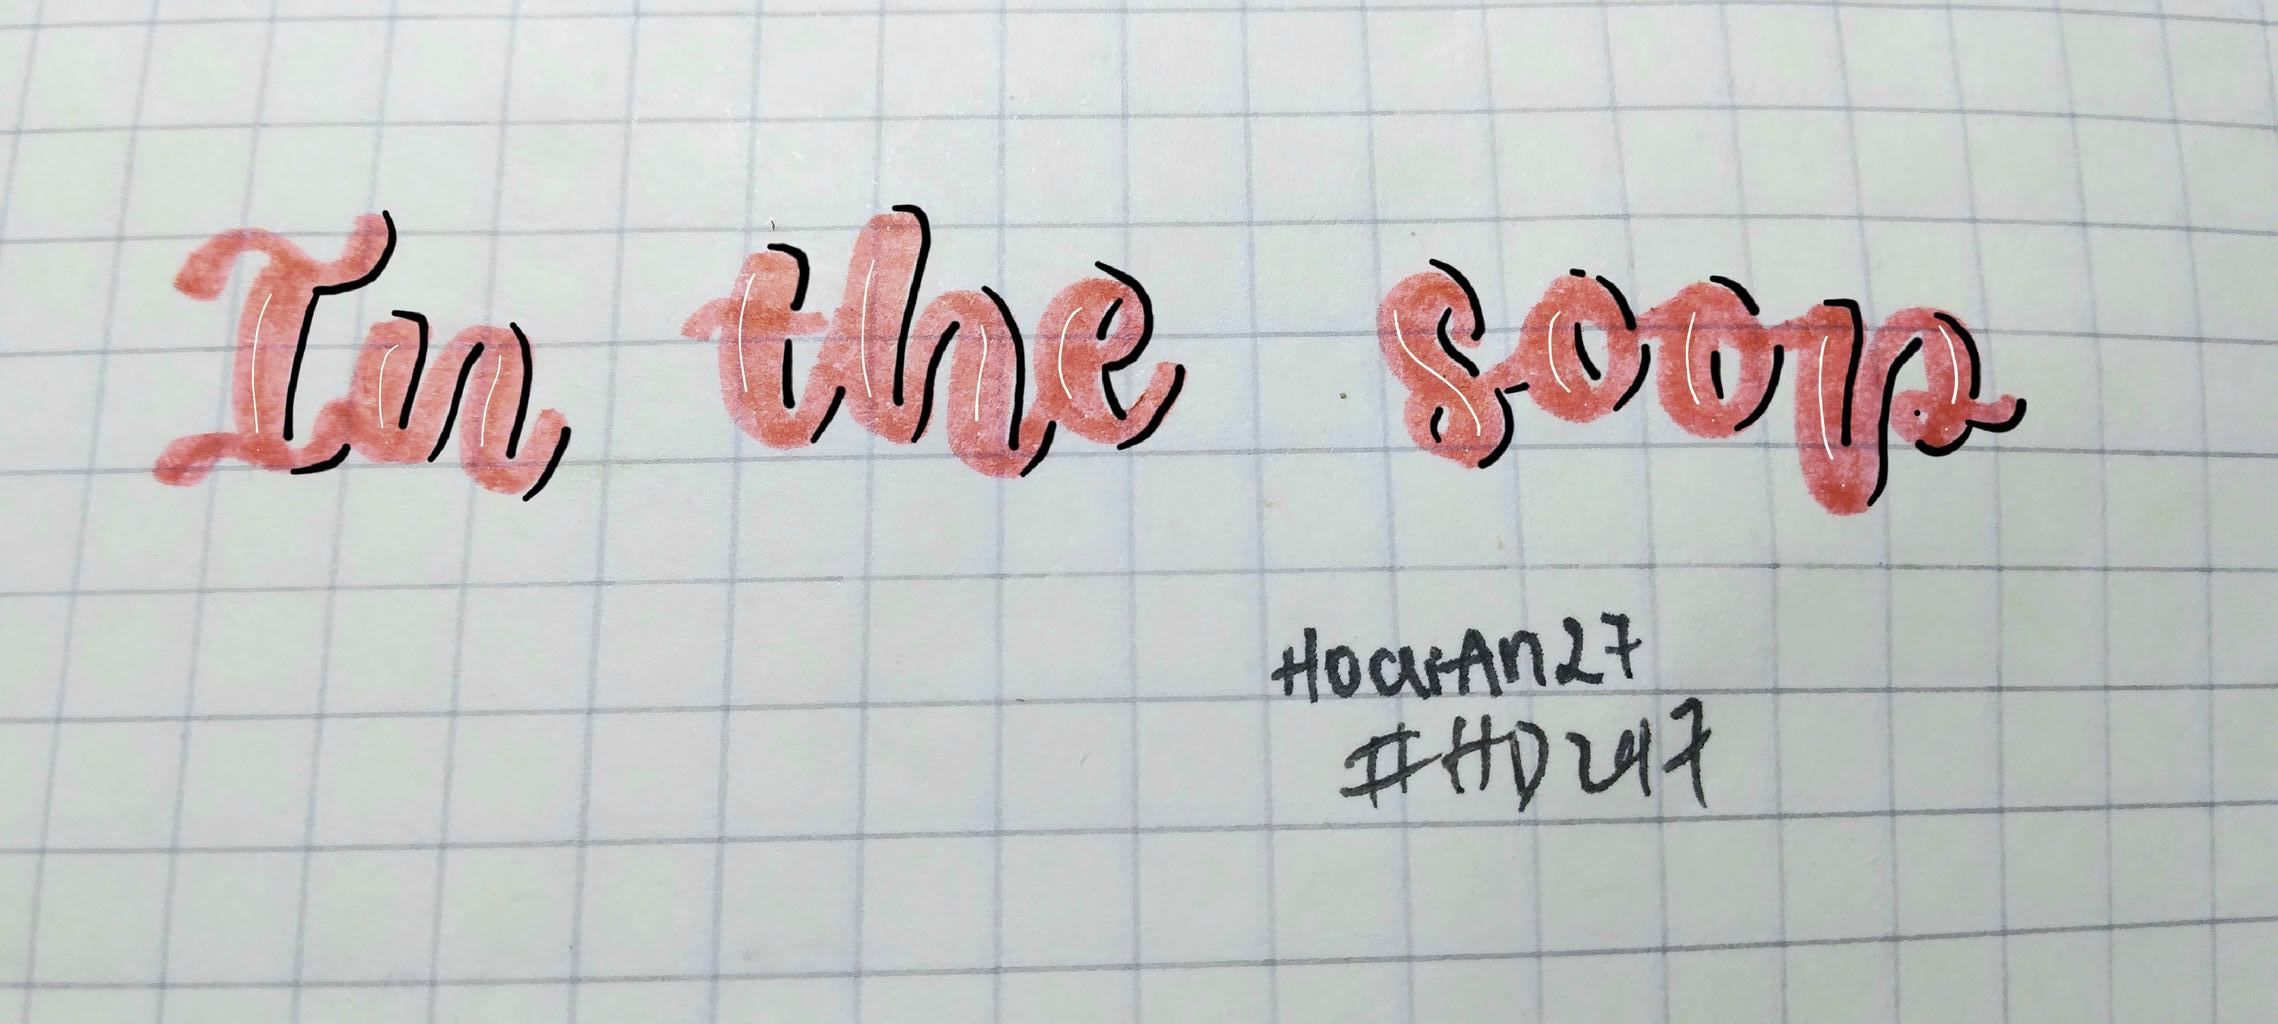 In the soop
HOaurAn27
#HD247